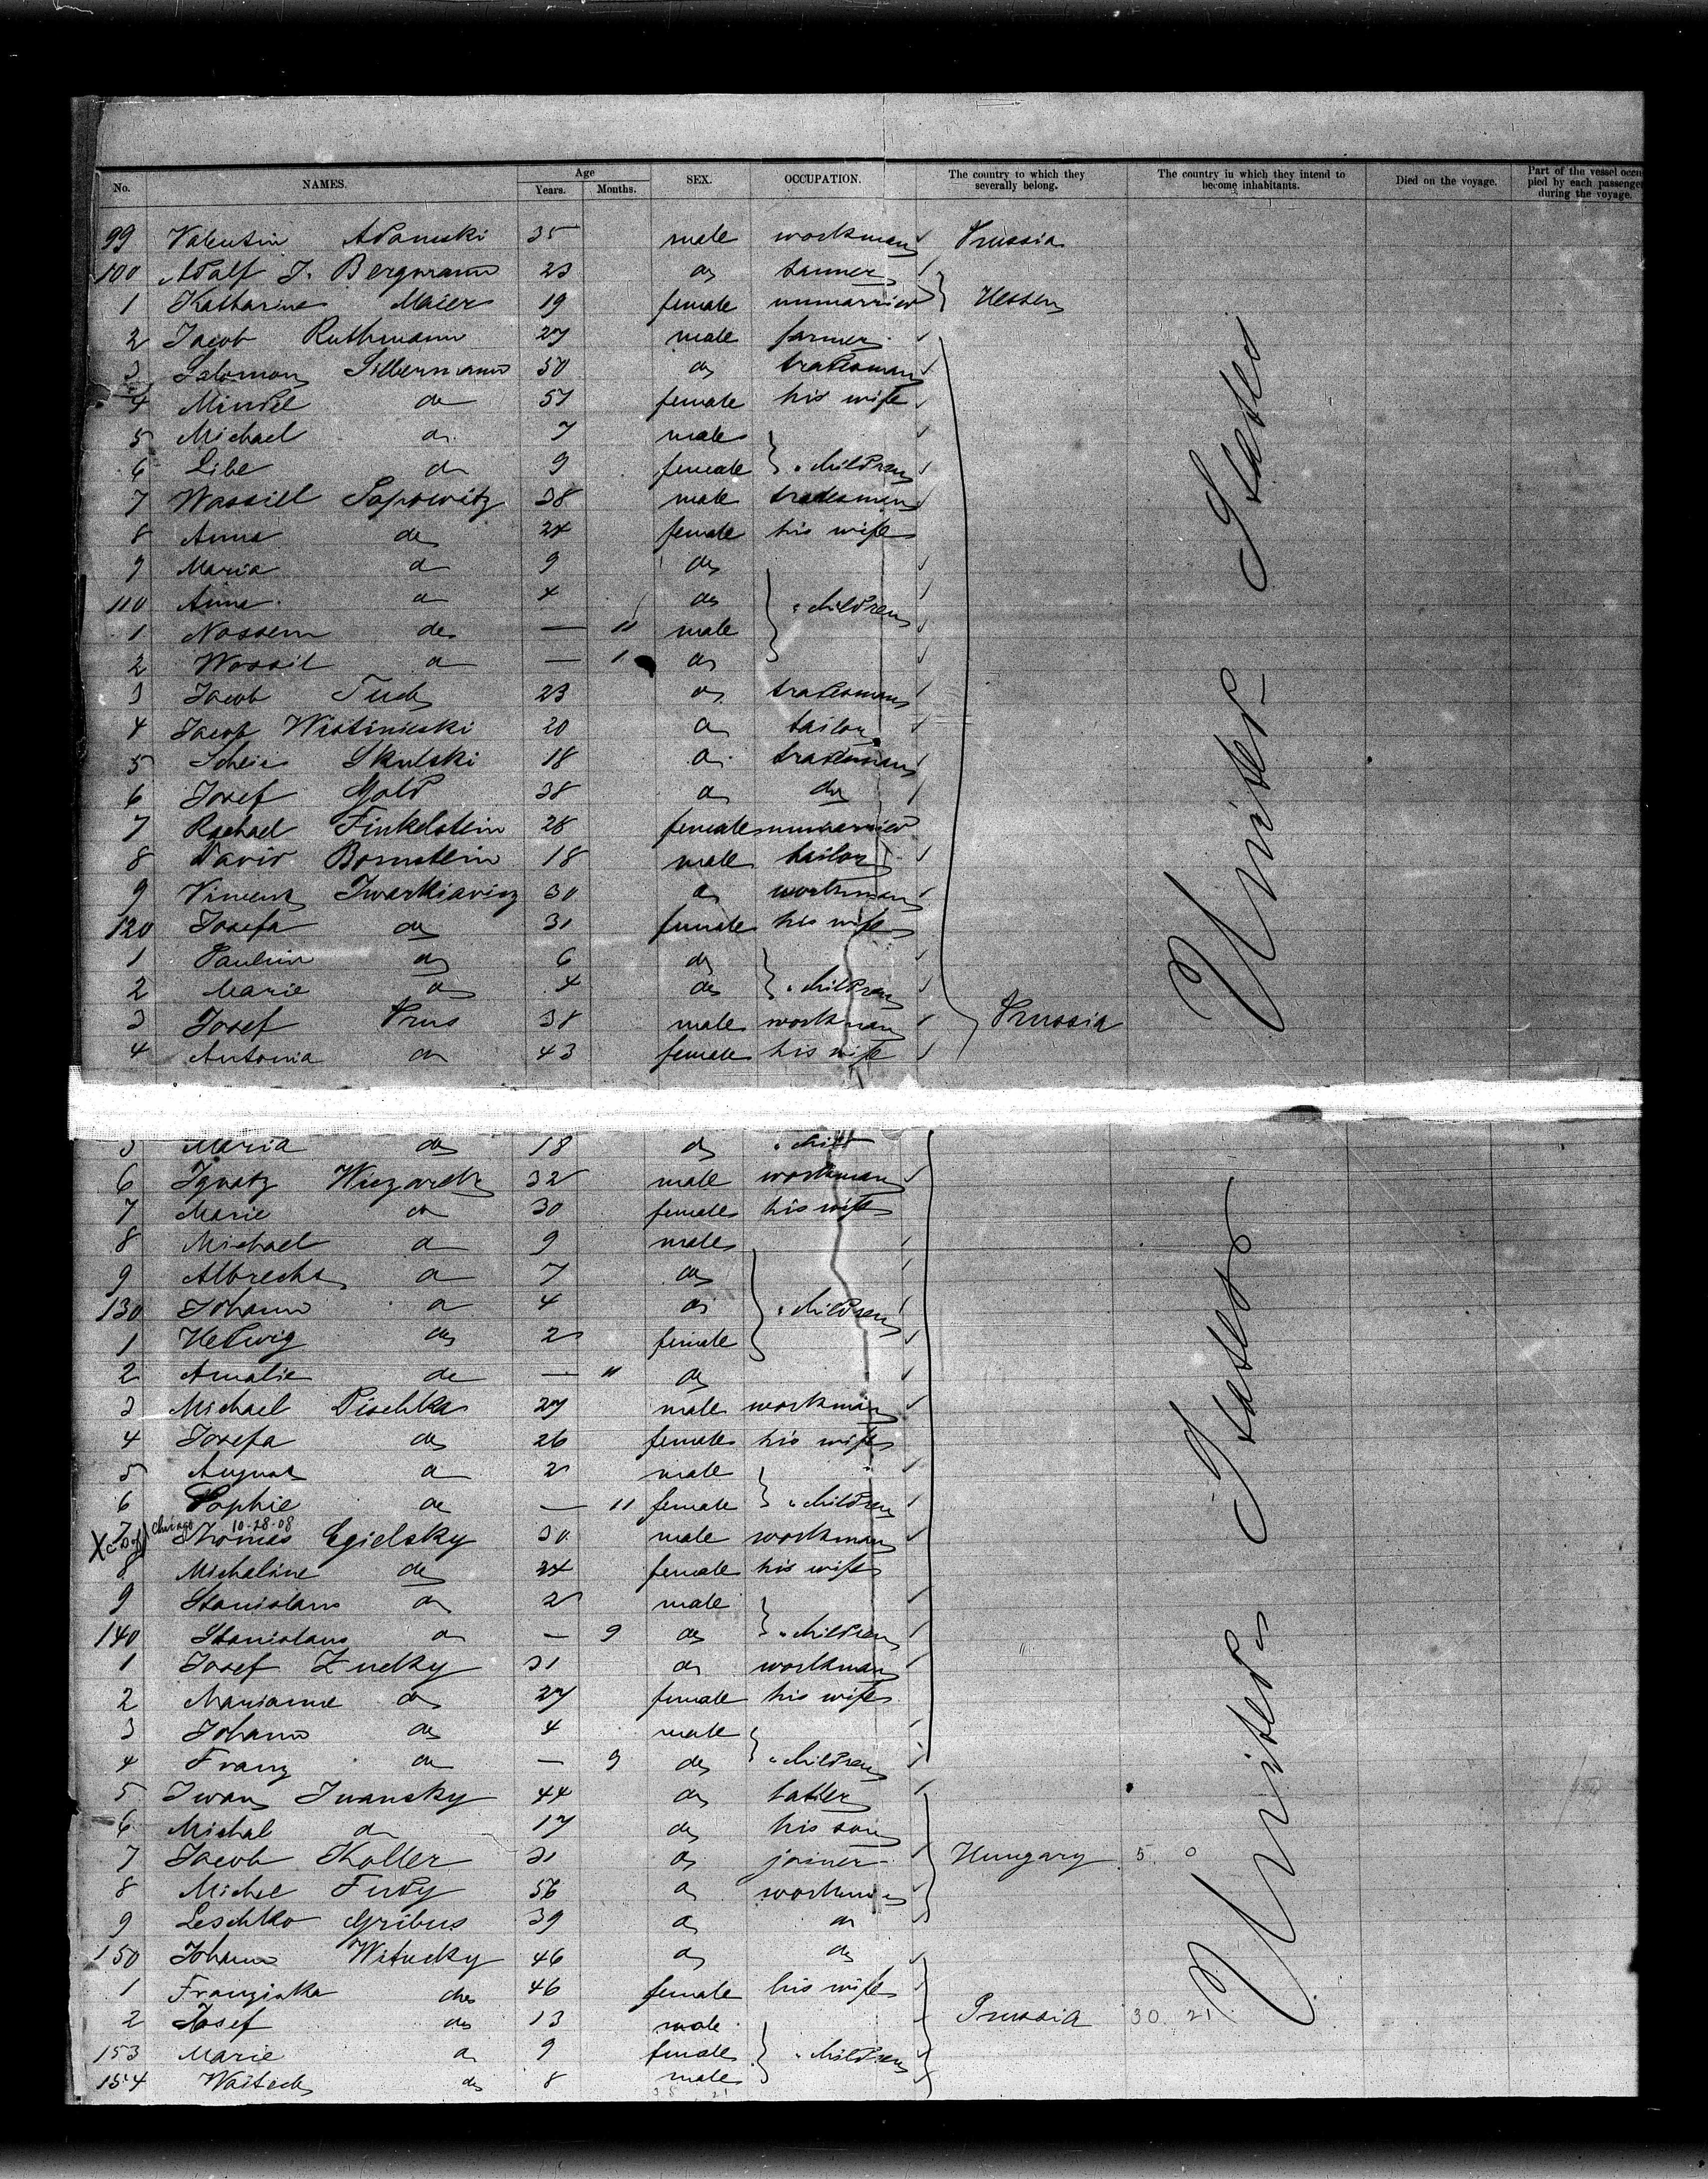 No. NAMES. Age Years. Months. SEX. OCCUPATION. The country to which they severally belong. The country in which they intend to become inhabitants. Died on the voyage. Part of the vessel occupied by each passenger during the voyage.
99 Valentin Adamski 35 male workman Prussia
100 Adolf J. Bergmann 23 do tanner
1 Katharine Maier 19 female unmarried Hessen
2 Jacob Ruthmann 27 male farmer
3 Salomon Silbermann 50 do tradesman
4 Mindel do 57 female his wife
5 Michael do 7 male
6 Libe do 9 female children
7 Wassiel Popowitz 38 male tradesman
8 Anna do 24 female his wife
9 Maria do 9 do
110 Anna do 4 do children
1 Nossem do — 11 male
2 Wossil do — 1 do
3 Jacob 23 do tradesman
4 Jacob 20 do tailor
5 Skulski 18 do tradesman
6 Josef Gold 38 do do
7 Rachael Finkelstein 28 female unmarried
8 David Bornstein 18 male tailor
9 Vincenz Iwarkiavicz 30 do workman
120 Josefa do 31 female his wife
1 Paulin do 6 do
2 Marie do 4 do children
3 Josef Prus 38 male workman Prussia
4 Antonia do 43 female his wife
United States
5 Maria do 18 do child
6 Ignatz 32 male workman
7 Marie do 30 female his wife
8 Michael do 9 male
9 Albrecht do 7 do
130 Johann do 4 do children
1 Hedwig do 2 female
2 Amalie do — 11 do
3 Michael Pischka 27 male workman
4 Josefa do 26 female his wife
5 August do 2 male
6 Sophie do — 11 female children
Chicago 10-28-08
7 Thomas Egielsky 30 male workman
8 Micheline do 24 female his wife
9 Stanislaus do 2 male
140 Stanislaus do — 9 do children
1 Josef Zucky 31 do workman
2 Marianne do 27 female his wife
3 Johann do 4 male
4 Franz do — 9 do children
5 Iwan Ivansky 44 do
6 Michal do 17 do his son
7 Jacob Koller 31 do joiner Hungary 5. 0
8 Michel Fudy 56 do workman
9 Leschko Gribus 39 do do
150 Johann Witucky 46 do do
1 Franziska do 46 female his wife
2 Josef do 13 male Prussia 30. 21
153 Marie do 9 female children
154 do 8 male
United States